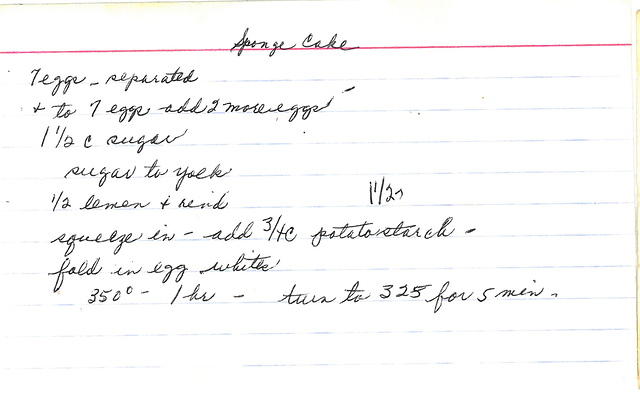 Sponge Cake
7 eggs - separated
+ to 7 eggs add 2 more eggs -
1 1/2 c sugar
sugar to yolk
1/2 lemon + rind
1 1/2
squeeze in - add 3/4 c potato starch -
fold in egg whites
350° - 1 hr - turn to 325 for 5 min.